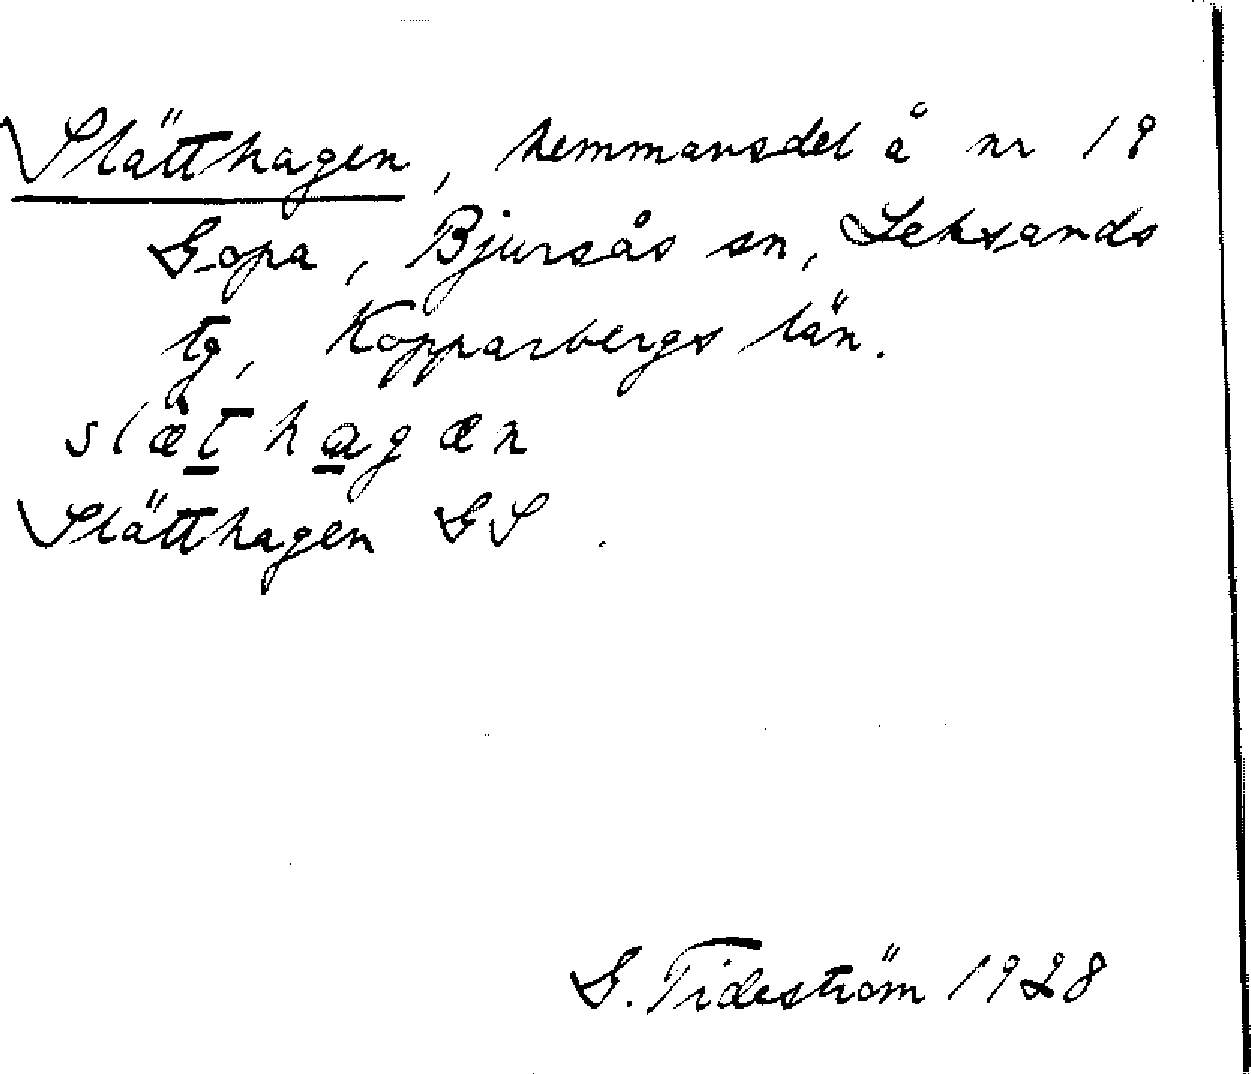 Slätthagen, hemmansdel å nr 19
Gopa, Bjursås sn, Leksands
tg, Kopparbergs län.
slæ̀t̲ha̲gæn
Slätthagen GS.
G. Tideström 1928